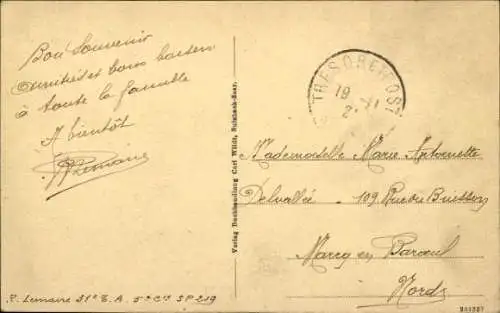 Bon Souvenir
amitiés et bons baisers
à toute la famille
A bientôt
P Lemaire
P. Lemaire 31e E.A. 5e Cie SP 219
Verlag Buchhandlung Carl Wildt, Sulzbach-Saar.
TRESOR ET POST
19 - 11
2
Mademoiselle Marie Antoinette
Delvallée 109 Rue du Buisson
Marcq en Baroeul
Nord